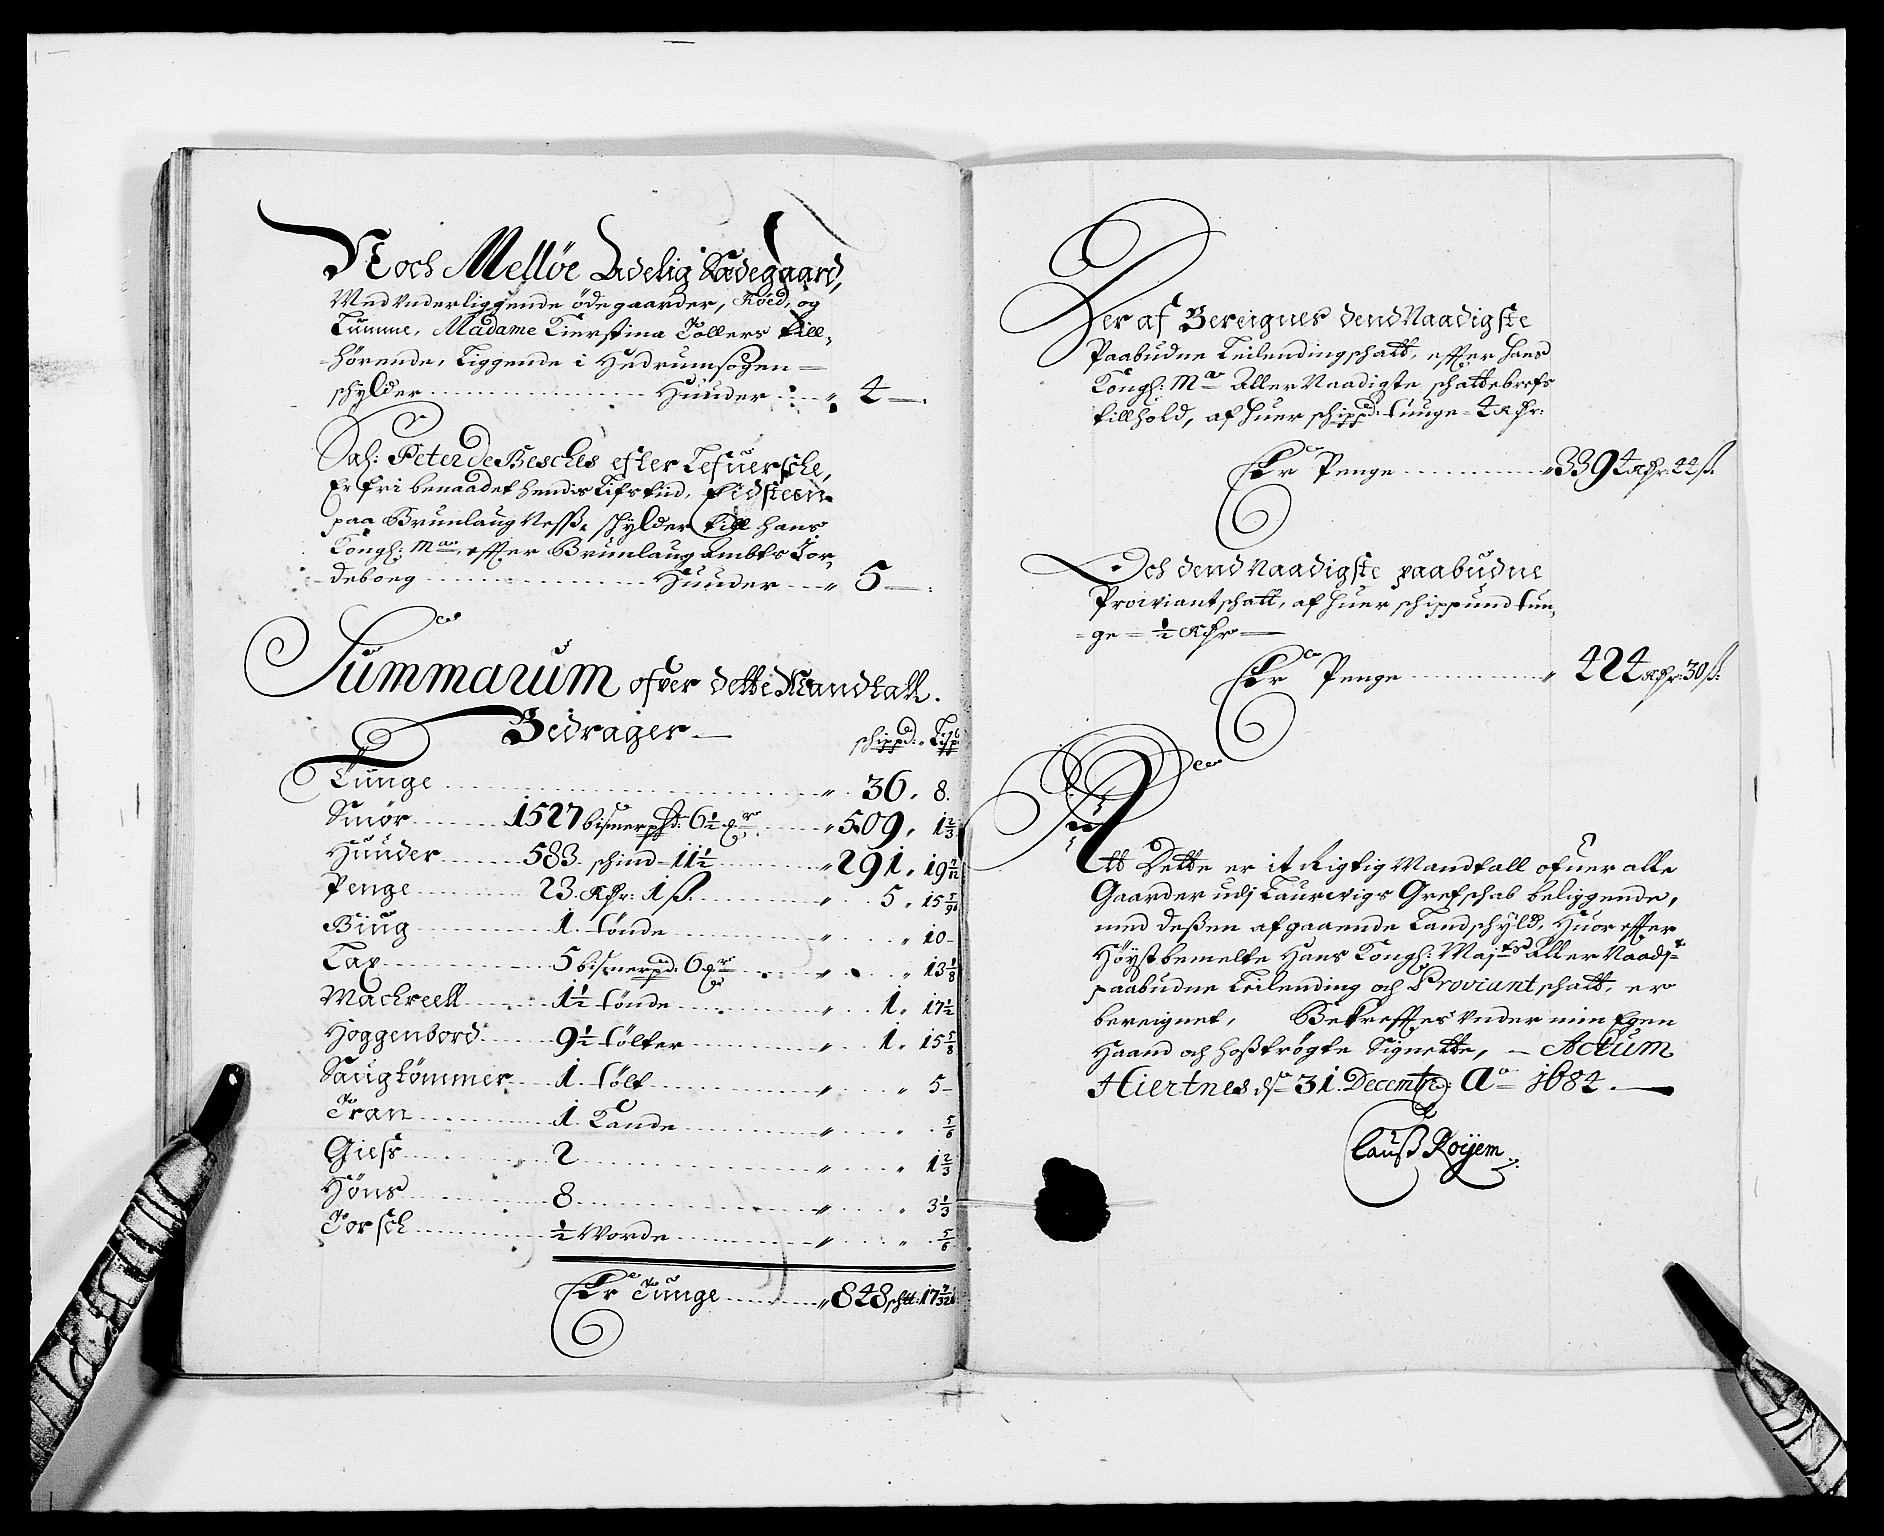 Noch Melløe Adelig Sædegaard,
Med Underliggende ödegaarder, Roed, og
Lumme, Madame Kierstina Tollers till-
hörende, Liggende i Hedrumsogen
schylder Huuder 4
Sal: Peter de Besches efter Lefuersche,
Er fri benaadet hendis Lifstiid, Eidsteen
paa Brunlaug Nesse, schylder till hans
Kongl: Maÿ, effter Brunlaug ambts Jor-
deboeg Huuder 5
Summarum ofver dette Mandtall
Bedrager
schippd: Lispd
Tunge 36. 8.
Smör 1527 bismerpd: 6½ 509. 1⅔
Huuder 583 schind 11½ 291. 19 7/12
Penge 23. Rdr: 1 ß. 5. 15 5/96
Biug 1. tönde 10
Lax 5 bismerpd: 6 13⅛
Mackreell 1½ tönde 1. 17½
Hoggenbord 9½ tölter 1. 15⅝
Saugtömmer 1. tölt 5
Tran 1. Kande ⅚
Giess 2 1⅔
Höns 8 3⅓
Torsch ½ Vorde ⅚
Er Tunge 848 schtt: 17 7/32
Der af Bereignes dend Naadigste
Paabudne Leilendingschatt, effter hans
Kongl: Maÿ Aller Naadigste schattebrefs
tillhold, af huer schippd: tunge 4 Rdr:
Er Penge 3394 Rdr: 44 ß.
Och dend Naadigste paabudne
Proiviantschatt, af huer schippund tun-
ge ½ Rdr
Er Penge 424 Rdr: 30 ß:
Att Dette er it Rigtig Mandtall ofuer alle
Gaarder udj Laurwigs Grefschab beliggende,
med deßen afgaaende Landschÿld, Huor effter
Höystbemelte Hans Kongl: Maj:ts Aller Naadj:e
paabudne Leilending och Proviantschatt, er
bereignet, Bekreffter Under min Egen
Haand och hoßtrögte Signette, Actum
Hiertnes d. 31. Decembr: Ao 1684.
Clauß Röyem